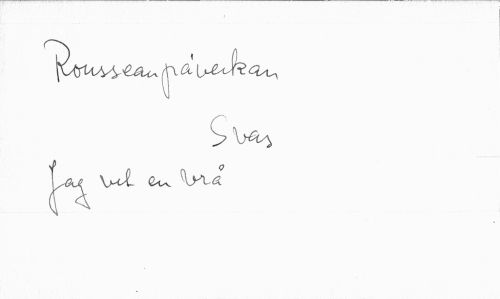 Rousseaupåverkan
Svas
Jag vet en vrå